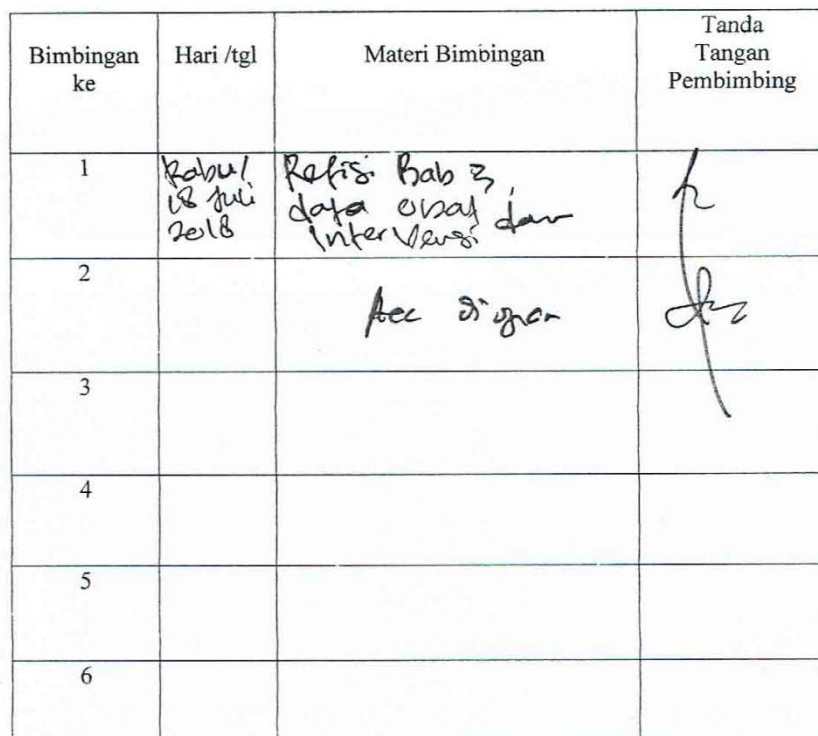 Bimbingan ke
Hari /tgl
Materi Bimbingan
Tanda Tangan Pembimbing
1
Rabu/
18 Juli
2018
Refisi Bab 3,
data obat dan
Intervensi
2
Acc
3
4
5
6